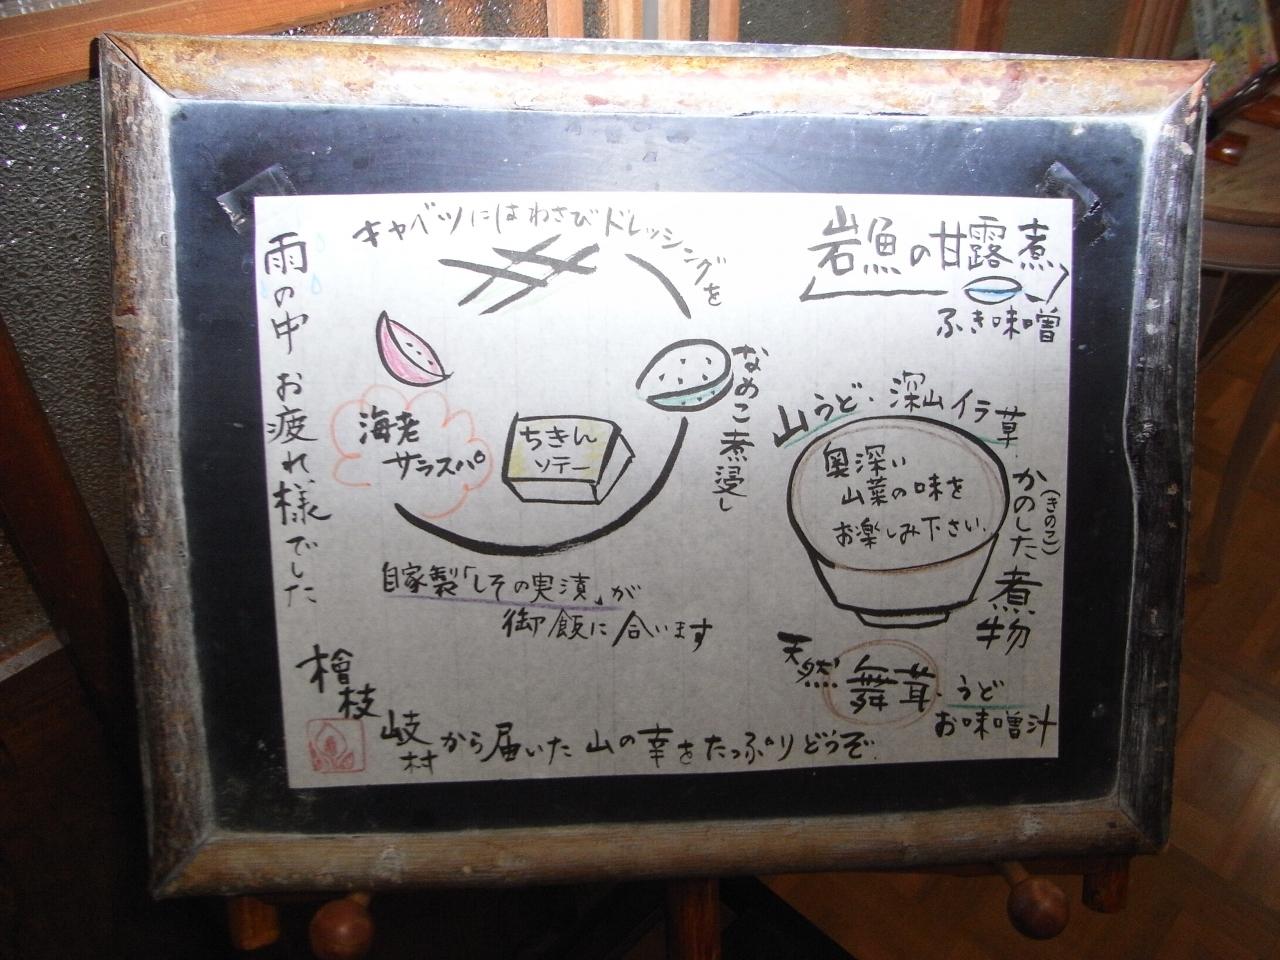 岩魚の甘露煮
ふき味噌
キャベツにはわさびドレッシングを
雨の中 お疲れ様でした
なめこ煮浸し
海老
サラスパ
ちきん
ソテー
山うど・深山イラ草
かのした煮物
(きのこ)
奥深い
山菜の味を
お楽しみ下さい。
自家製「しその実漬」が
御飯に合います
天然 舞茸・うど
お味噌汁
檜枝岐村から届いた山の幸をたっぷりどうぞ。